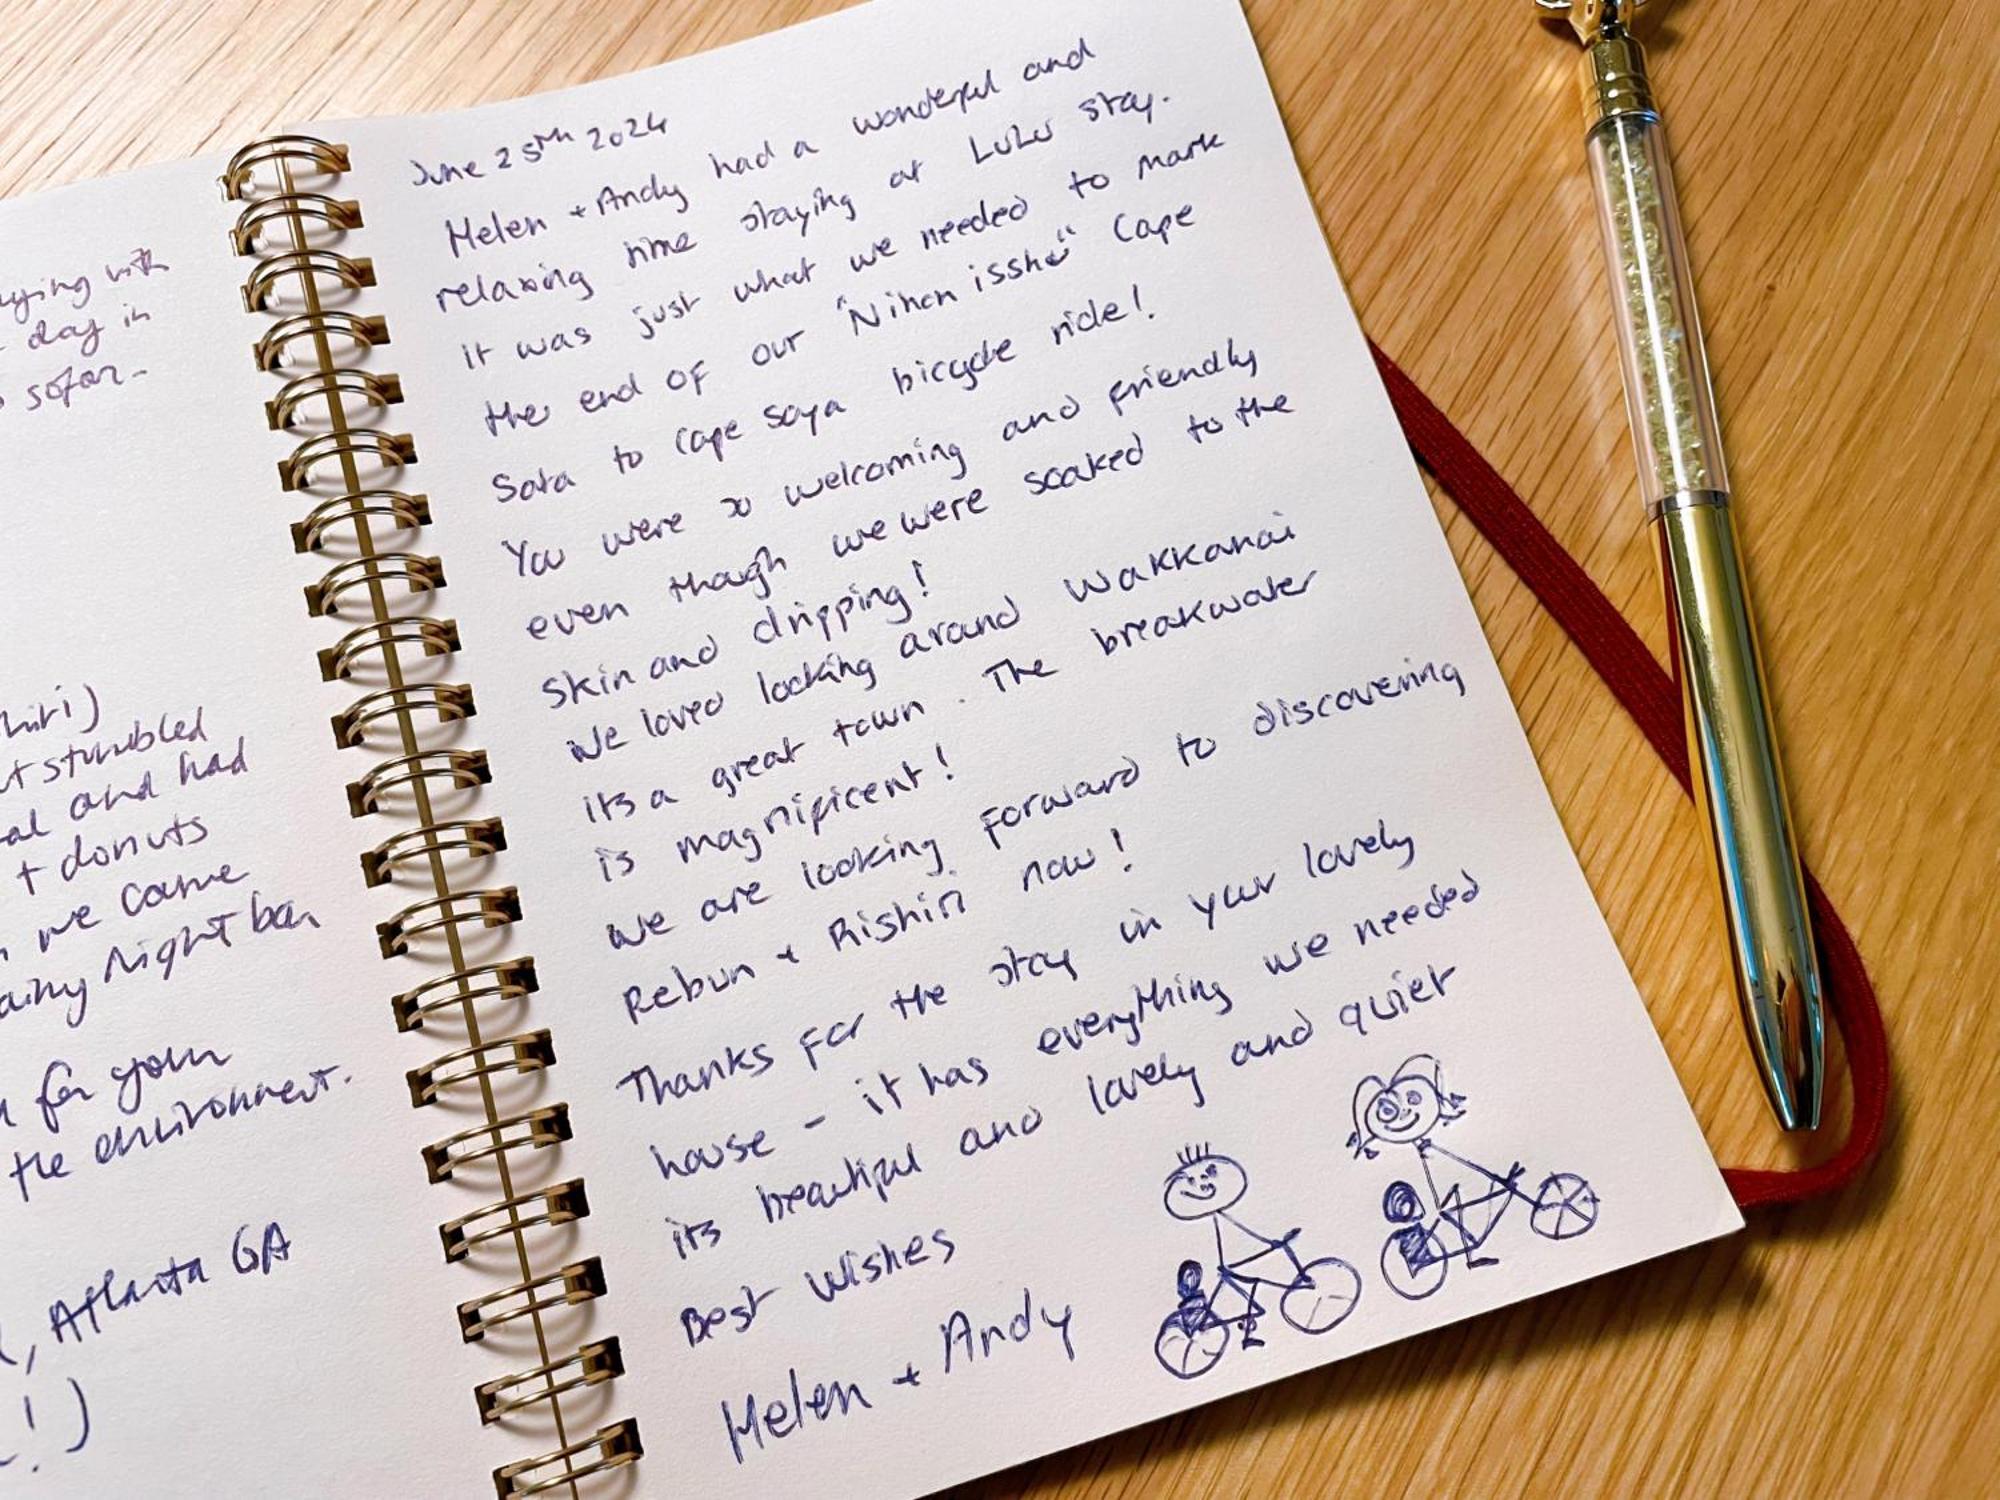 ying with
day in
sofar-
hiri)
t stumbled
al and had
+ donuts
we came
ainy Night ban
for your
the environment.
, Atlanta GA
!)
June 25th 2024
Helen + Andy had a wonderful and
relaxing time staying at LuLu stay.
it was just what we needed to mark
the end of our "Nihon isshū" Cape
Sata to Cape Soya bicycle ride!
You were so welcoming and friendly
even though we were soaked to the
skin and dripping!
We loved looking around Wakkanai
its a great town. The breakwater
is magnificent!
We are looking forward to discovering
Rebun + Rishiri now!
Thanks for the stay in your lovely
house - it has everything we needed
its beautiful and lovely and quiet
Best wishes
Helen + Andy